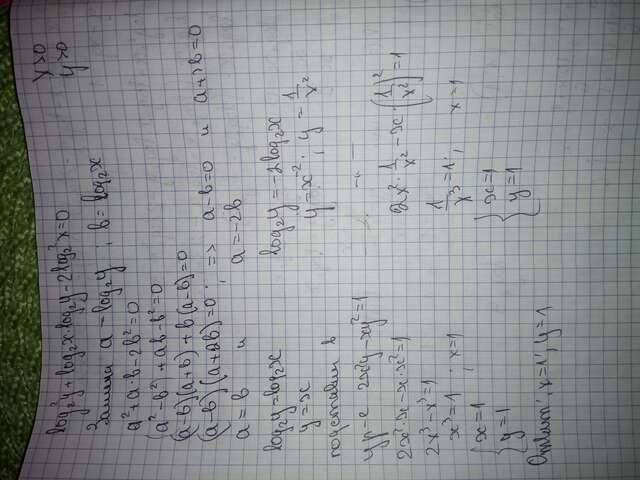 x>0
y>0
log₂²y + log₂x·log₂y - 2log₂²x = 0
Замена a = log₂y, b = log₂x
a² + a·b - 2b² = 0
(a² - b²) + ab - b² = 0
(a-b)(a+b) + b(a-b) = 0
(a-b)(a+2b) = 0; => a-b=0 и a+2b=0
a = b и a = -2b
log₂y = log₂x log₂y = -2log₂x
y = x y = x⁻²; y = 1/x²
подставим в
ур-е 2x²y - xy² = 1 — " —
2x²·x - x·x² = 1 2x²·1/x² - x·(1/x²)² = 1
2x³ - x³ = 1
x³ = 1; x = 1 1/x³ = 1; x = 1
{ x = 1 { x = 1
{ y = 1 { y = 1
Ответ: x=1; y=1